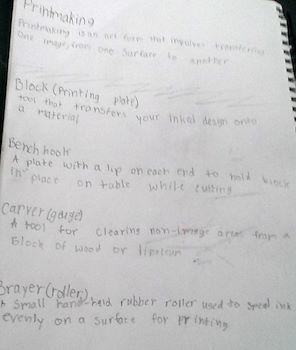 Printmaking
Printmaking is an art form that involves transfering
One image, from one surface to another
Block (Printing plate)
tool that transfers your inked design onto
a material
Bench hook
A plate with a lip on each end to hold block
in place on table while cutting
Carver (gouge)
A tool for clearing non-image areas from a
Block of wood or linoleum
Brayer (roller)
A small hand-held rubber roller used to spred ink
evenly on a surface for printing